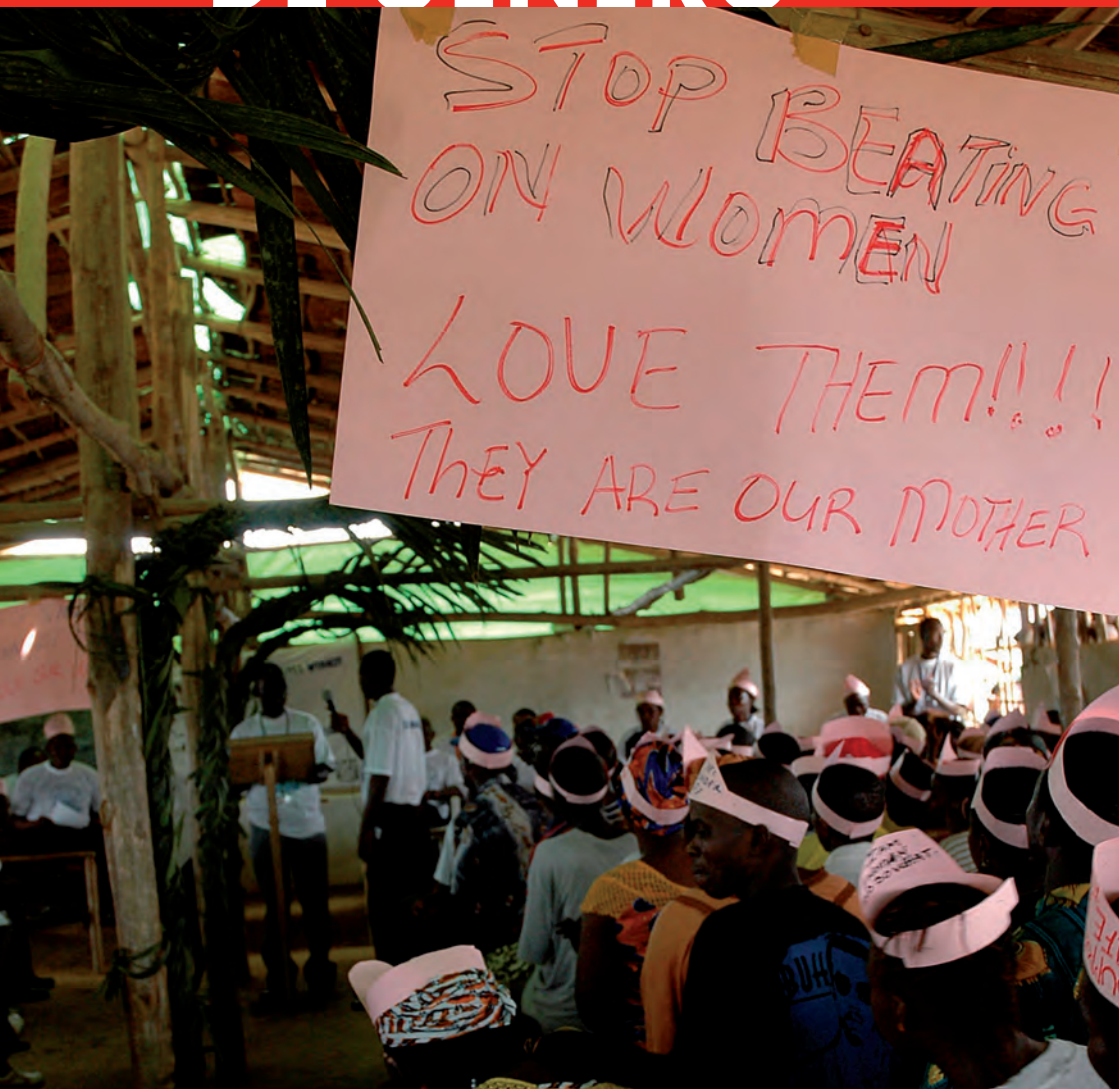 STOP BEATING
ON WOMEN
LOVE THEM!!!!
ThEY ARE OUR MOTHER